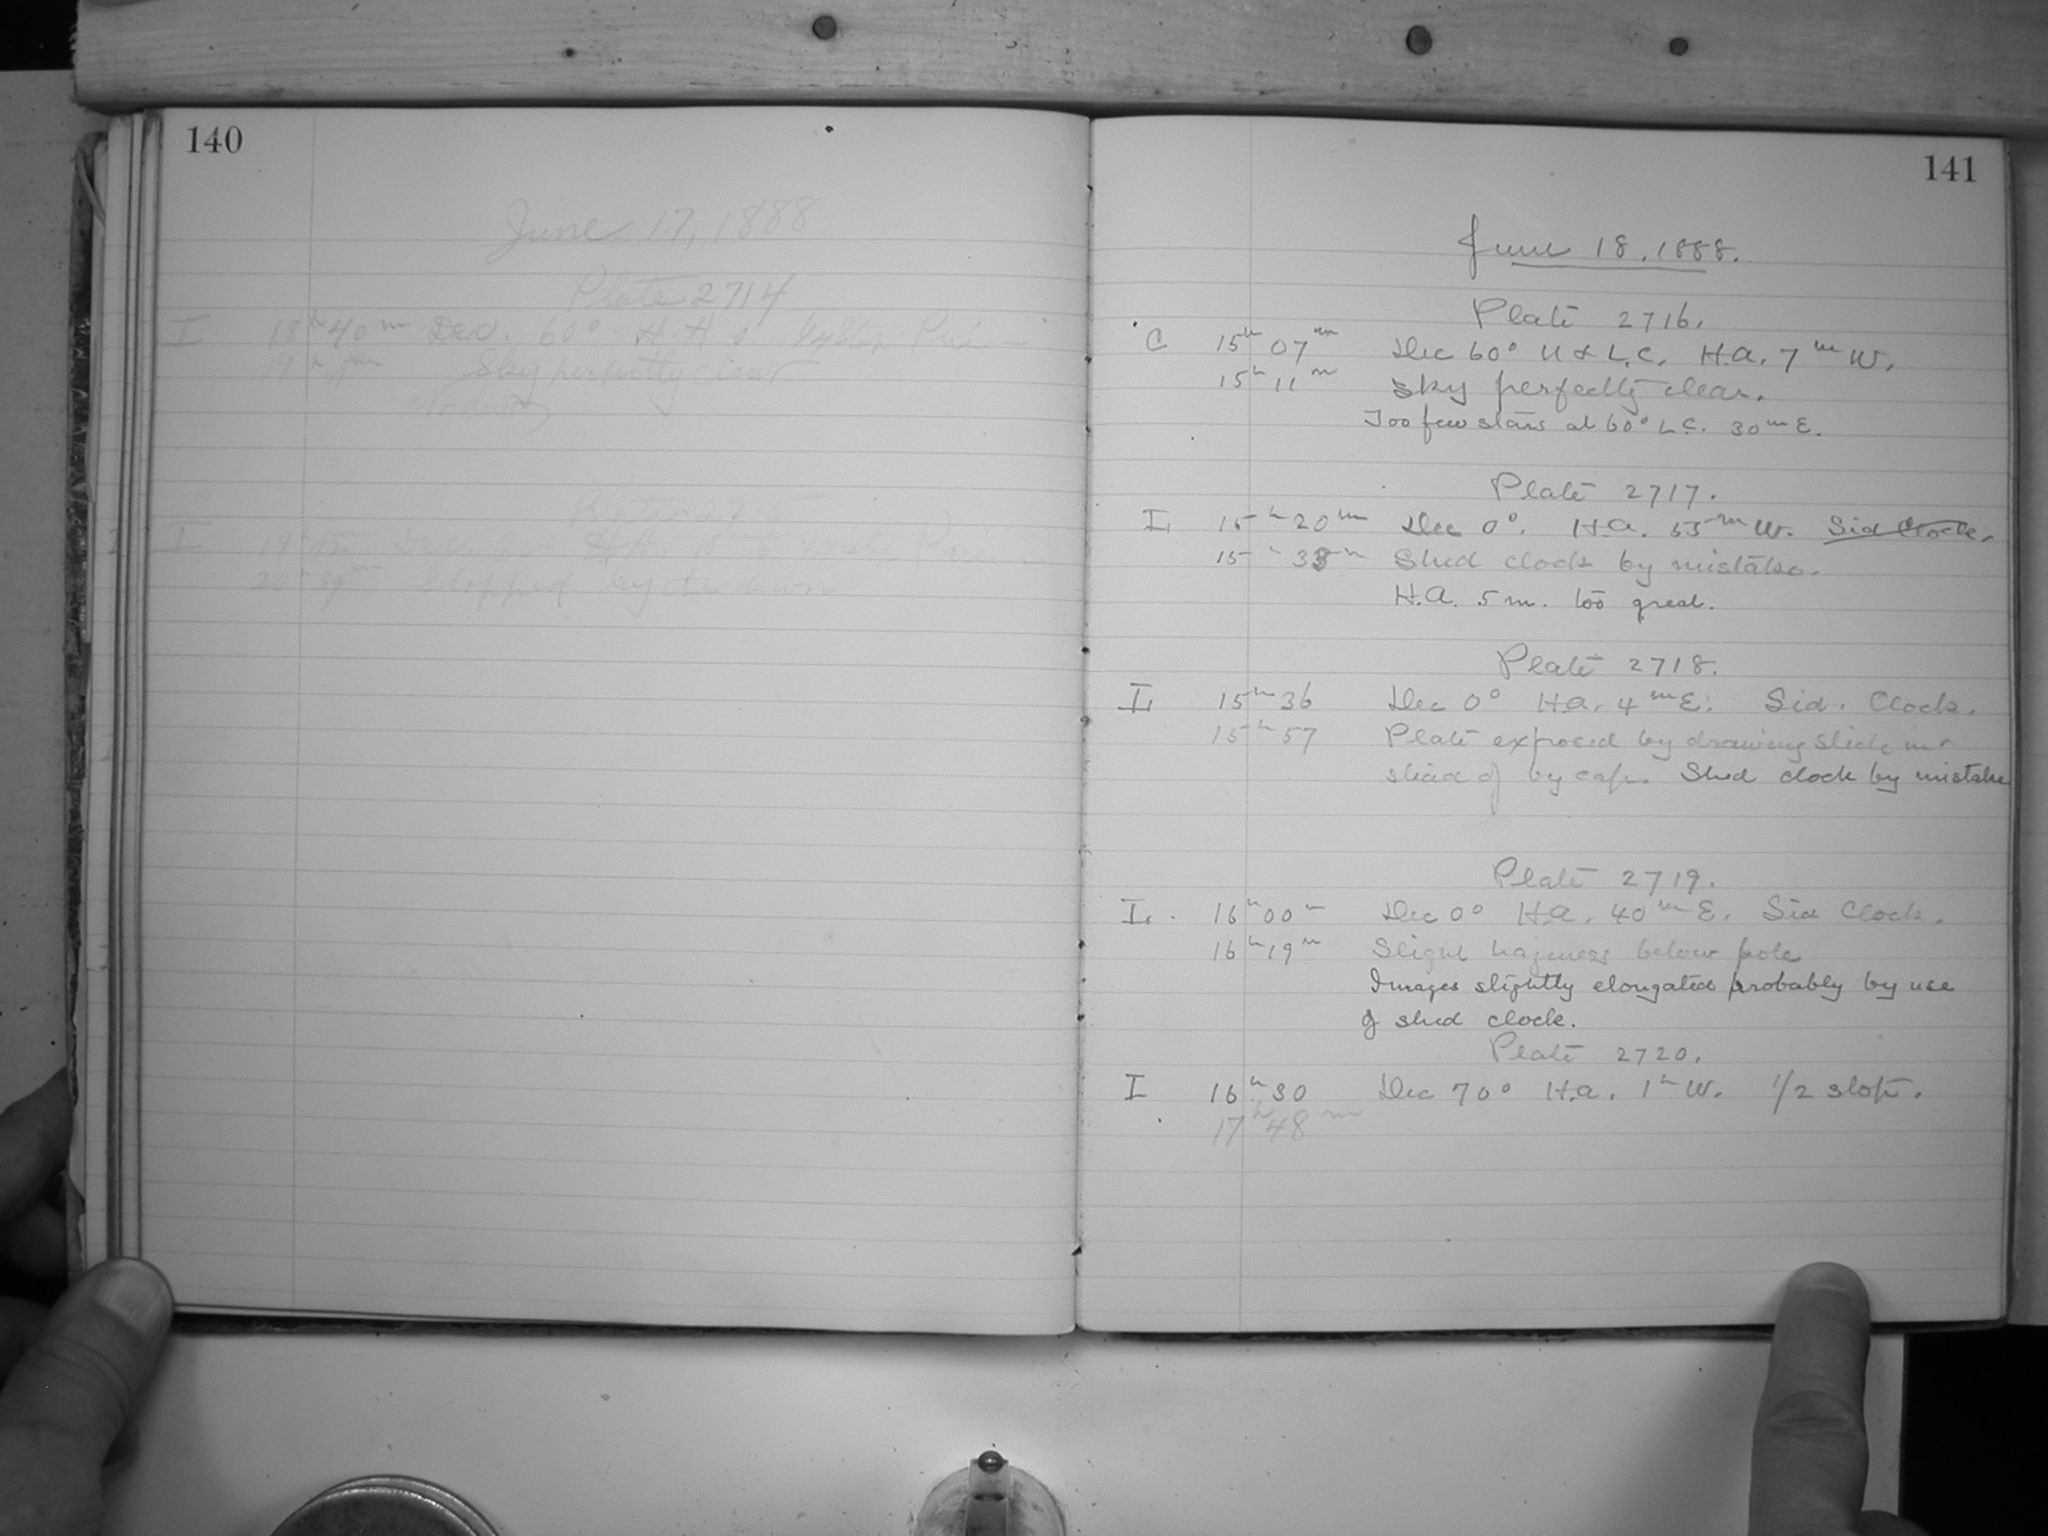 140
June 17, 1888
Plate 2714
I 18h 40m Dec. 60° H.A 0
19h m Sky perfectly clear
I 19 Dec H.A.
20h 39m Stopped by the dawn
141
June 18, 1888.
Plate 2716.
C 15h 07m Dec 60° U & L.C. H.A. 7m W.
15h 11m Sky perfectly clear.
Too few stars at 60° L.C. 30m E.
Plate 2717.
I 15h 20m Dec 0°. H.A. 55m W. Sid Clock.
15h 33m Shed clock by mistake.
H.A. 5 m. too great.
Plate 2718.
I 15h 36 Dec 0° H.A. 4m E. Sid. Clock.
15h 57 Plate exposed by drawing slide in-
stead of by cap. Shed clock by mistake
Plate 2719.
I 16h 00m Dec 0° H.A. 40m E. Sid Clock.
16h 19m Slight haziness below pole
Images slightly elongated probably by use
of shed clock.
Plate 2720.
I 16h 30 Dec 70° H.A. 1h W. 1/2 stop.
17h 48m